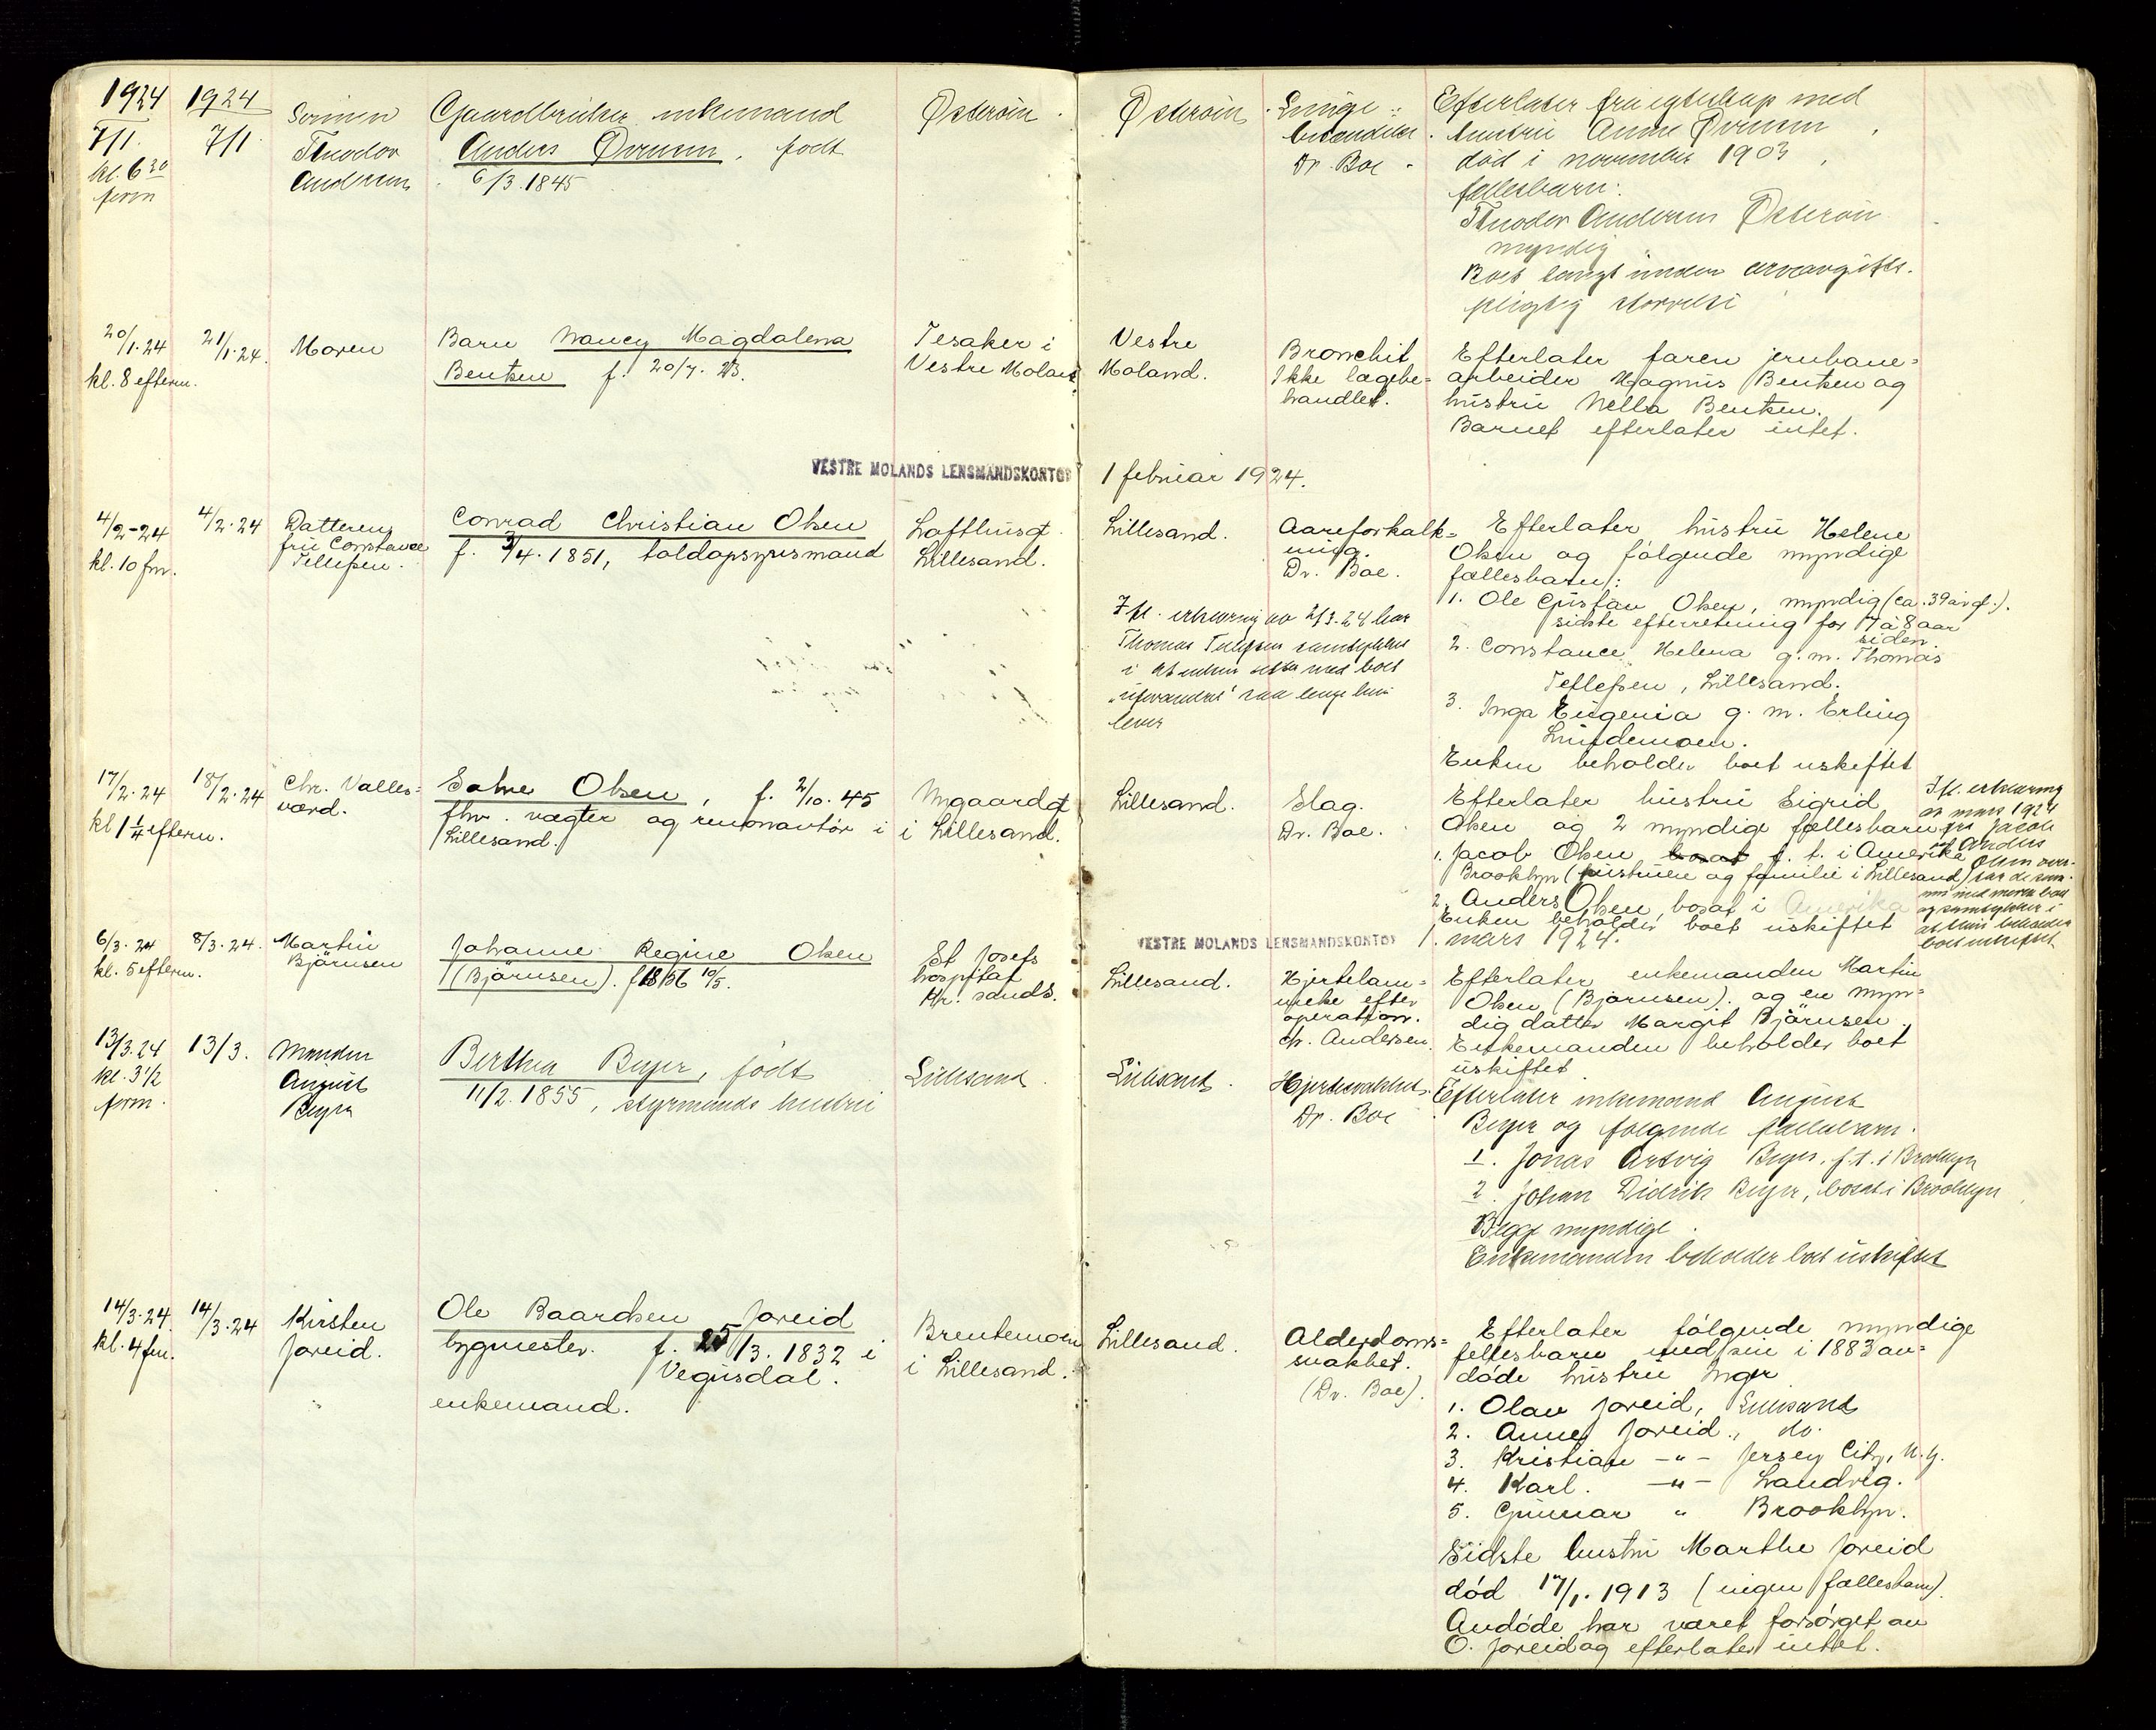 1924
7/1
kl. 6 30
form
1924
7/1
Sønnen
Theodor
Andersen
Gaardbruker enkemand
Anders Øvrum, født
6/3.1845
Østerøin
Østerøin
Dr. Boe
Efterlater fra egteskap med
hustru Anne Øvrum
død i november 1903
fellesbarn:
Theodor Andersen Østerøin
myndig
Boet langt under arveavgifts-
pligtig størrelse
20/1.24
kl. 8 efterm.
21/1.24.
Moren
Barn Nancy Magdalena
Bentsen f. 20/7. 23.
Tesaker i
Vestre Moland
Vestre
Moland.
Bronchit
Ikke lægebe=
handlet.
Efterlater faren jernbane=
arbeider Magnus Bentsen og
hustru Nella Bentsen.
Barnet efterlater intet.
VESTRE MOLANDS LENSMANDSKONTOR
1 februar 1924.
4/2-24
kl. 10 fm.
4/2.24
Datteren
fru Constance
Tellefsen.
Conrad Christian Olsen
f. 3/4.1851, toldopsynsmand
Lofthusgt.
Lillesand.
Lillesand.
Aareforkalk=
ning.
Dr. Boe.
Ifl. erklæring av 2/3-24 har
Thomas Tellefsen samtykket
i at enken sitter med boet
"uforandret" saa lenge hun
lever
Efterlater hustru Helene
Olsen og følgende myndige
fællesbarn:
1. Ole Gustav Olsen, myndig (ca. 39 aar gl.).
sidste efterretning for 7 à 8 aar
siden
2. Constance Helena g. m. Thomas
Tellefsen, Lillesand.
3. Inga Eugenia g. m. Erling
Lundemoen.
Enken beholder boet uskiftet
17/2.24
kl 1 1/4 efterm.
18/2.24
Chr. Valles=
værd.
Salve Olsen, f. 2/10.45
fhv. vægter og renovatør i
Lillesand.
Nygaardgt
i Lillesand.
Lillesand.
Slag.
Dr. Boe.
Efterlater hustru Sigrid
Olsen og 2 myndige fællesbarn
1. Jacob Olsen bosat f. t. i Amerika
Brooklyn (hustruen og familie i Lillesand)
2. Anders Olsen, bosat i Amerika
Enken beholder boet uskiftet
Ifl. erklæring
av mars 1924
fra Jacob
og Anders
Olsen over-
lar de sam-
men med moren boet
og samtykker i
at hun beholder
boet uskiftet
VESTRE MOLANDS LENSMANDSKONTOR
1. mars 1924.
6/3.24
kl. 5 efterm.
8/3.24.
Martin
Bjørnsen
Johanne Regine Olsen
(Bjørnsen). f 1856 10/5.
St Josefs
hospital
Kr. sands.
Lillesand.
Hjertelam=
melse efter
operation.
Ch. Andersen.
Efterlater enkemanden Martin
Olsen (Bjørnsen). og en myn=
dig datter Margit Bjørnsen.
Enkemanden beholder boet
uskiftet.
13/3.24
kl. 3 1/2
form.
13/3.
Manden
August
Beyer
Berthea Beyer, født
11/2.1855, styrmands hustru
Lillesand.
Lillesand.
Hjertesvakhet.
Dr. Boe
Efterlater enkemand August
Beyer og følgende fællesbarn.
1. Jonas Artvig Beyer, f.t. i Brooklyn
2. Johan Didrik Beyer, bosat i Brooklyn
Begge myndige.
Enkemanden beholder boet uskiftet
14/3.24.
kl. 4 fm.
14/3.24
Kirsten
Joreid.
Ole Baardsen Joreid
bygmester. f. 25/3. 1832 i
Vegusdal.
enkemand.
Brentemoen
i Lillesand.
Lillesand.
Alderdoms=
svakhet.
(Dr. Boe).
Efterlater følgende myndige
fellesbarn med sin i 1883 av=
døde hustru Inger
1. Olav Joreid, Lillesand
2. Anne Joreid., do.
3. Kristian -"- Jersey City, N. J.
4. Karl. -"- Landvig.
5. Gunnar " Brooklyn.
Sidste hustru Marthe Joreid
død 17/1.1913 (ingen fællesbarn)
Avdøde har været forsørget av
O. Joreid og efterlater intet.